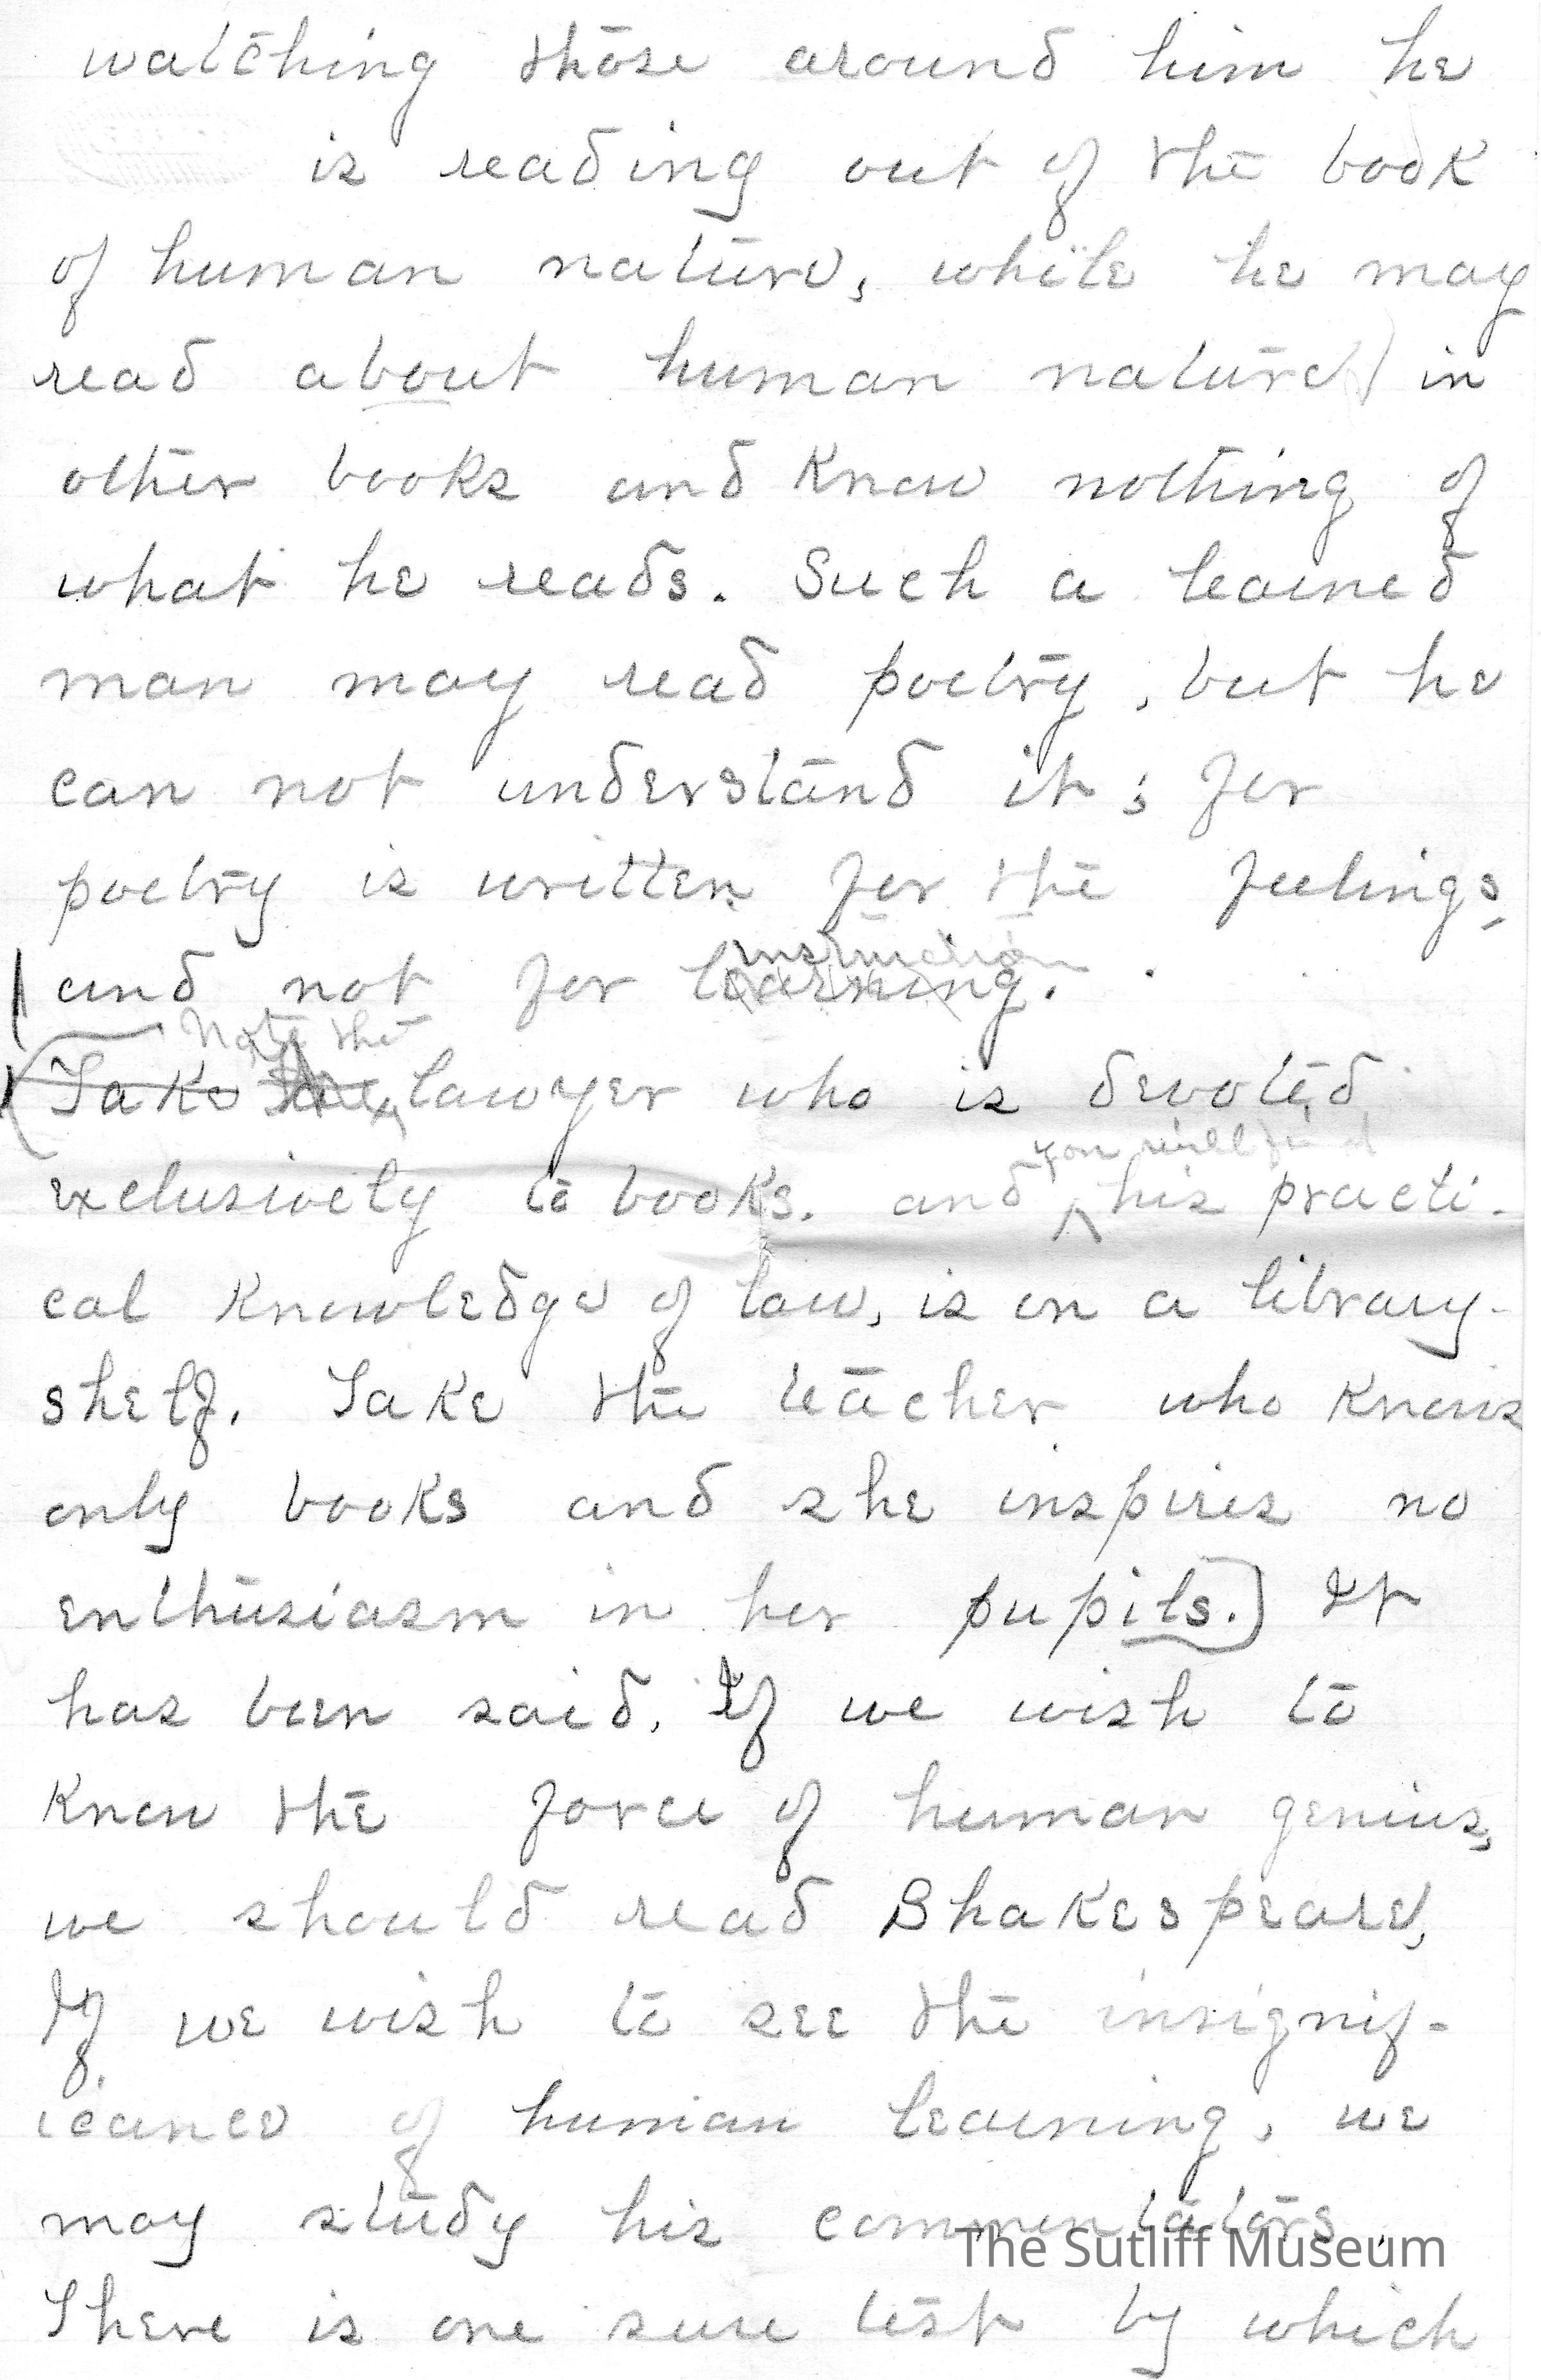 watching those around him he
is reading out of the book
of human nature, while he may
read about human nature in
other books and know nothing of
what he reads. Such a learned
man may read poetry, but he
can not understand it; for
poetry is written for the feelings,
instruction
and not for learning.
Note the
(Take the lawyer who is devoted
you will find
exclusively to books. and his practi-
cal knowledge of law, is on a library-
shelf. Take the teacher who knows
only books and she inspires no
enthusiasm in her pupils.) It
has been said, If we wish to
know the force of human genius,
we should read Shakespeare,
If we wish to see the insignif-
icance of human learning, we
may study his commentators.
The Sutliff Museum
There is one sure test by which